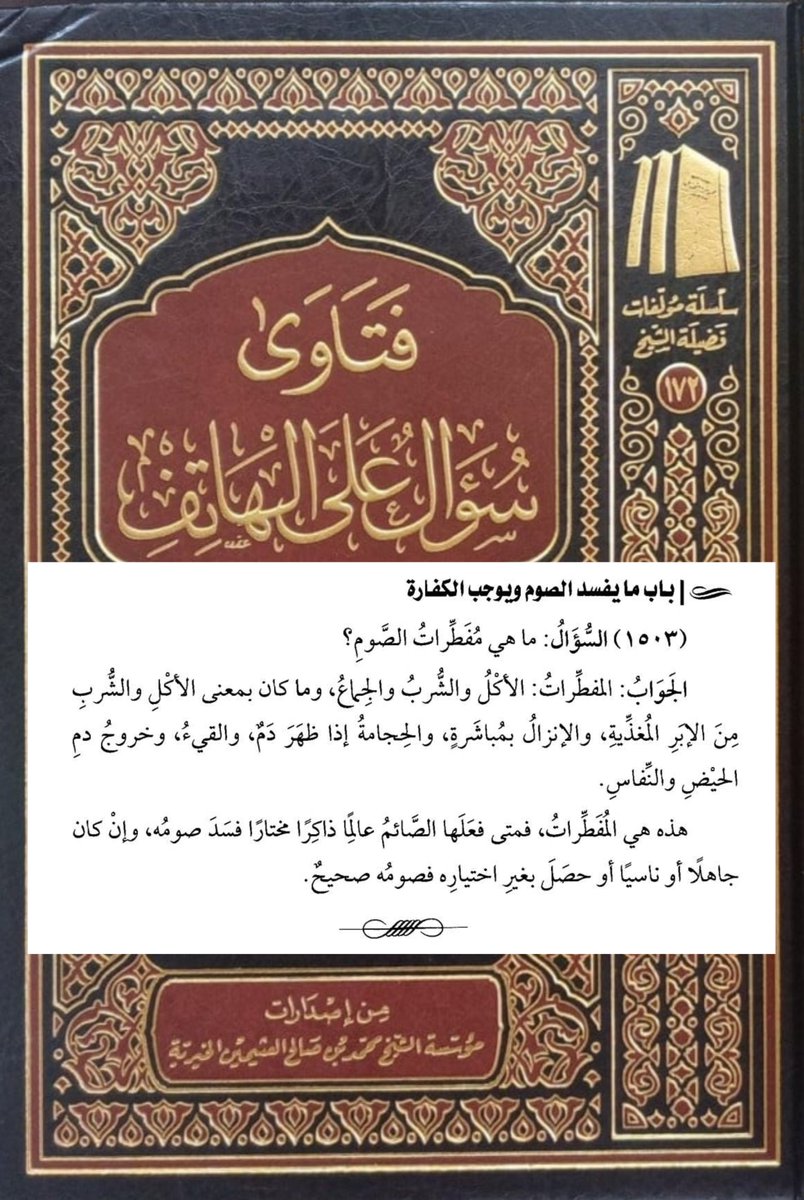 سلسلة مؤلفات
فضيلة الشيخ
١٧٢
فَتَاوَى
سُؤَال عَلَى الهَاتِفِ
باب ما يفسد الصوم ويوجب الكفارة
(١٥٠٣) السُّؤَالُ: ما هي مُفَطِّراتُ الصَّومِ؟
الجَوَابُ: المفطِّراتُ: الأكْلُ والشُّربُ والجِماعُ، وما كان بمعنى الأكْلِ والشُّربِ
مِنَ الإبَرِ المُغذِّيةِ، والإنزالُ بمُباشَرةٍ، والحِجامةُ إذا ظهَرَ دَمٌ، والقيءُ، وخروجُ دمِ
الحيْضِ والنِّفاسِ.
هذه هي المُفَطِّراتُ، فمتى فعَلَها الصَّائمُ عالِمًا ذاكِرًا مختارًا فسَدَ صومُه، وإنْ كان
جاهلًا أو ناسيًا أو حصَلَ بغيرِ اختيارِه فصومُه صحيحٌ.
مِن إصْدَارات
مؤسسة الشيخ محمد بن صالح العثيمين الخيرية